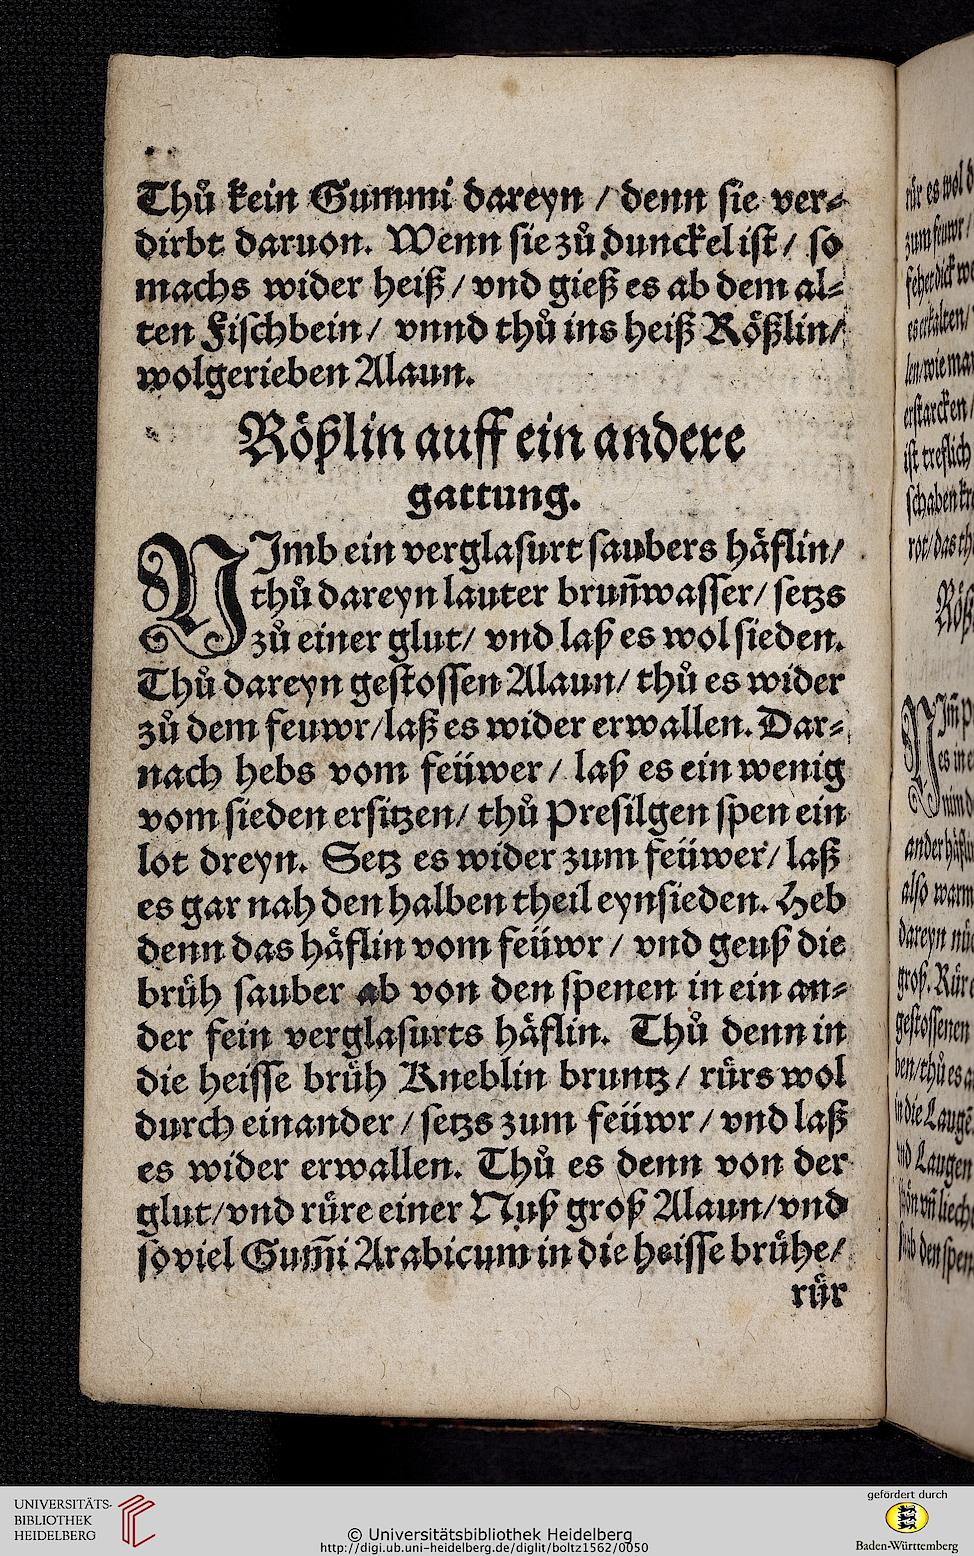 Thů kein Gummi dareyn / denn sie ver⸗
dirbt daruon. Wenn sie zů dunckel ist / so
machs wider heiß / vnd gieß es ab dem al⸗
ten Fischbein / vnnd thů ins heiß Rößlin /
wolgerieben Alaun.
Rößlin auff ein andere
gattung.
NImb ein verglasurt saubers häflin /
thů dareyn lauter brun̄wasser / setzs
zů einer glut / vnd laß es wol sieden.
Thů dareyn gestossen Alaun / thů es wider
zů dem feuwr / laß es wider erwallen. Dar⸗
nach hebs vom feüwer / laß es ein wenig
vom sieden ersitzen / thů Presilgen spen ein
lot dreyn. Setz es wider zum feüwer / laß
es gar nah den halben theil eynsieden. Heb
denn das häflin vom feüwr / vnd geuß die
brüh sauber ab von den spenen in ein an⸗
der fein verglasurts häflin. Thů denn in
die heisse brüh Kneblin bruntz / rürs wol
durch einander / setzs zum feüwr / vnd laß
es wider erwallen. Thů es denn von der
glut / vnd rüre einer Nuß groß Alaun / vnd
so viel Gum̄i Arabicum in die heisse brühe /
rür
rür es wol
ist treflich
also warm
groß. Rür
gestossenen
in die Lauge
Laugen
UNIVERSITÄTS-
BIBLIOTHEK
HEIDELBERG
© Universitätsbibliothek Heidelberg
http://digi.ub.uni-heidelberg.de/diglit/boltz1562/0050
gefördert durch
Baden-Württemberg